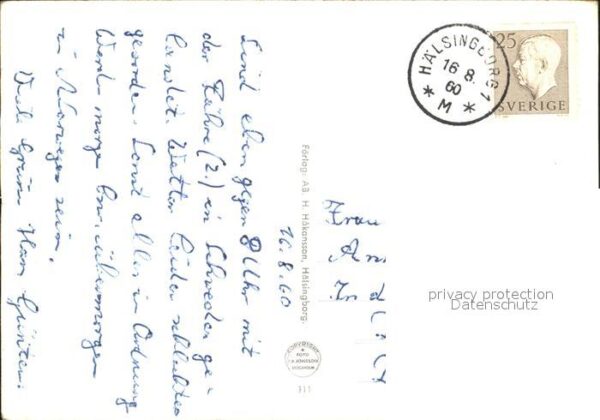 16.8.60
Sind eben gegen 8 Uhr mit
der Fähre (2.) in Schweden ge-
landet. Wetter leider schlechter
geworden. Sonst alles in Ordnung
Werden morgen bzw. übermorgen
in Norwegen sein.
Viele Grüße Hans Günter.
Förlag: AB. H. Håkansson, Hälsingborg.
COPYRIGHT
FOTO
STOCKHOLM
311
HÄLSINGBORG 1
16 8.
60
* M *
25
SVERIGE
Frau
privacy protection
Datenschutz